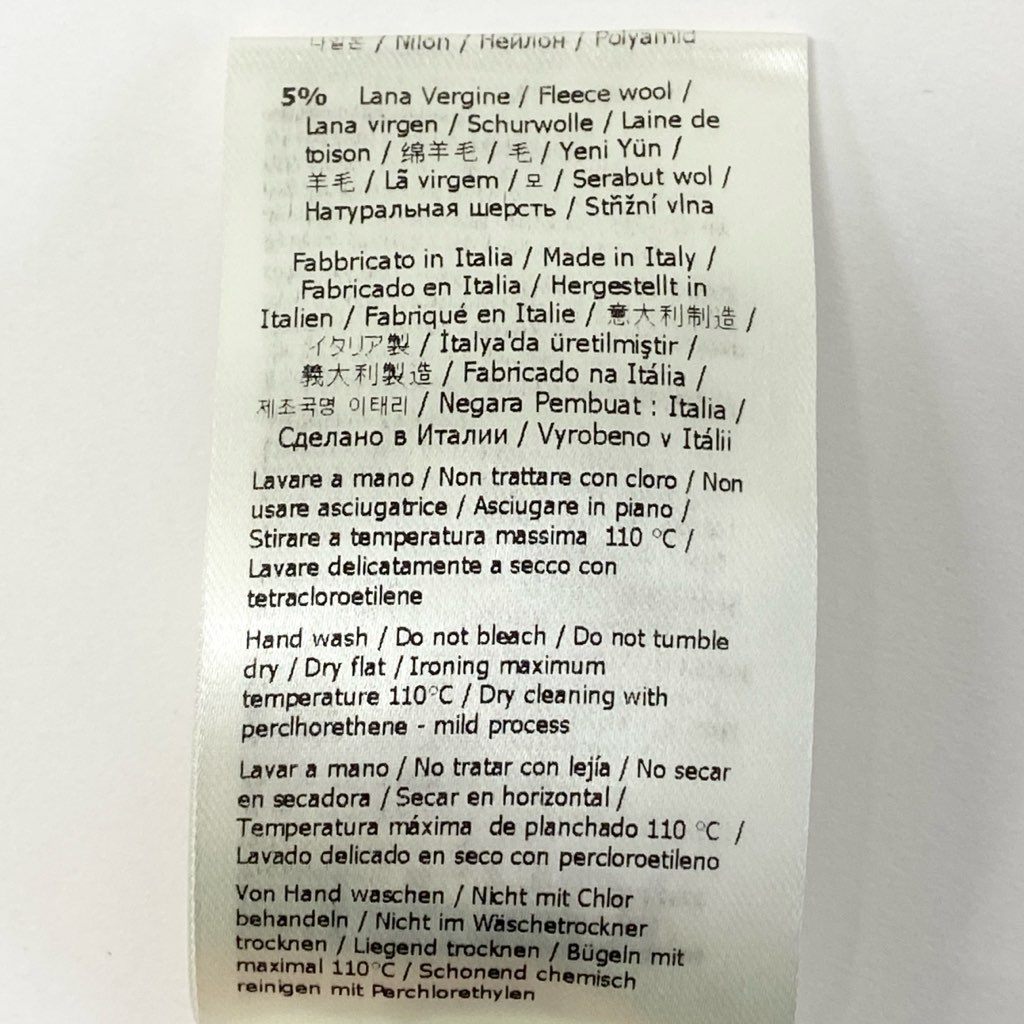 나일론 / Nilon / Нейлон / Polyamid
5% Lana Vergine / Fleece wool /
Lana virgen / Schurwolle / Laine de
toison / 绵羊毛 / 毛 / Yeni Yün /
羊毛 / Lã virgem / 모 / Serabut wol /
Натуральная шерсть / Střžní vlna
Fabbricato in Italia / Made in Italy /
Fabricado en Italia / Hergestellt in
Italien / Fabriqué en Italie / 意大利制造 /
イタリア製 / İtalya'da üretilmiştir /
義大利製造 / Fabricado na Itália /
제조국명 이태리 / Negara Pembuat : Italia /
Сделано в Италии / Vyrobeno v Itálii
Lavare a mano / Non trattare con cloro / Non
usare asciugatrice / Asciugare in piano /
Stirare a temperatura massima 110 °C /
Lavare delicatamente a secco con
tetracloroetilene
Hand wash / Do not bleach / Do not tumble
dry / Dry flat / Ironing maximum
temperature 110°C / Dry cleaning with
perclhorethene - mild process
Lavar a mano / No tratar con lejía / No secar
en secadora / Secar en horizontal /
Temperatura máxima de planchado 110 °C /
Lavado delicado en seco con percloroetileno
Von Hand waschen / Nicht mit Chlor
behandeln / Nicht im Wäschetrockner
trocknen / Liegend trocknen / Bügeln mit
maximal 110°C / Schonend chemisch
reinigen mit Perchlorethylen